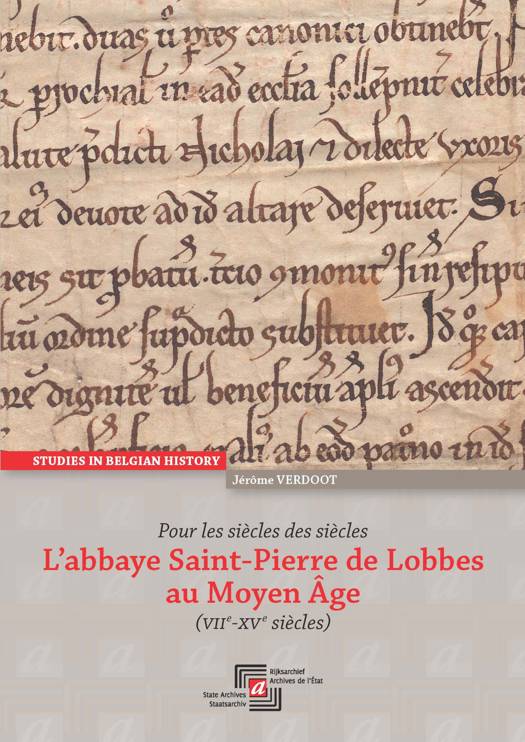 nebit. duas u pres canonici obtinebt.
prochial in ead ecclia sollepnit celebr
alute pdicti Nicholai 7 dilecte vxoris
ei deuote ad id altare deseruiet. Si
neis sit pbatu. tcio 9monit9 si resipi
iu ordine supdicto substituet. Id q ca
dignite ul beneficiu apli ascendit
ab eod patno in id
STUDIES IN BELGIAN HISTORY
Jérôme VERDOOT
Pour les siècles des siècles
L'abbaye Saint-Pierre de Lobbes
au Moyen Âge
(VIIe-XVe siècles)
Rijksarchief
Archives de l'État
a
State Archives
Staatsarchiv